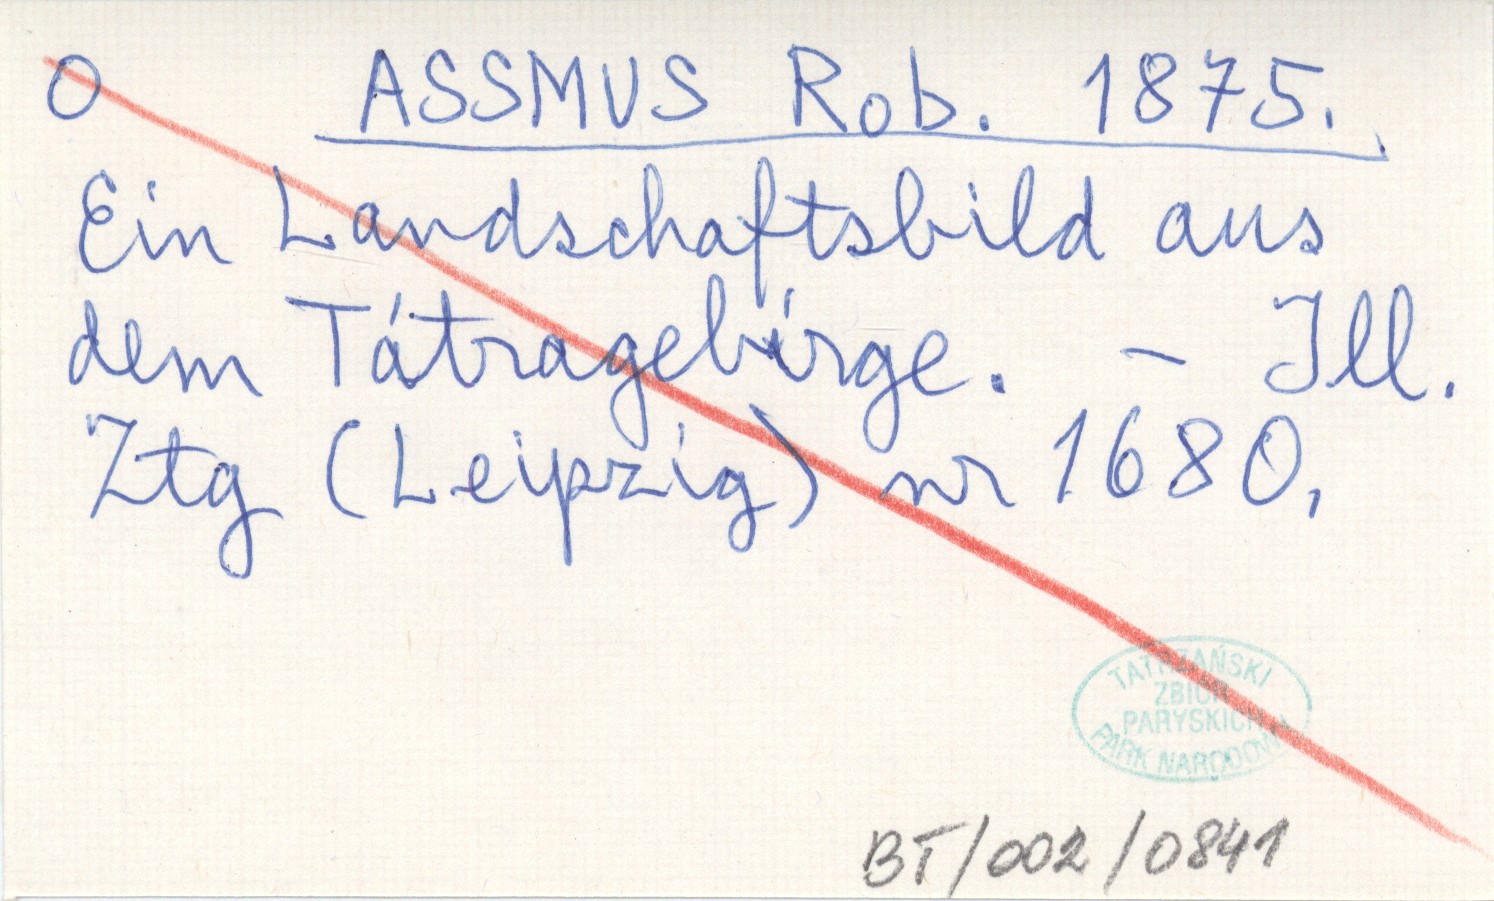 O ASSMUS Rob. 1875.
Ein Landschaftsbild aus
dem Tátragebirge. – Ill.
Ztg (Leipzig) nr 1680,
TATRZAŃSKI
ZBIÓR
PARYSKICH
PARK NARODOWY
BT/002/0841